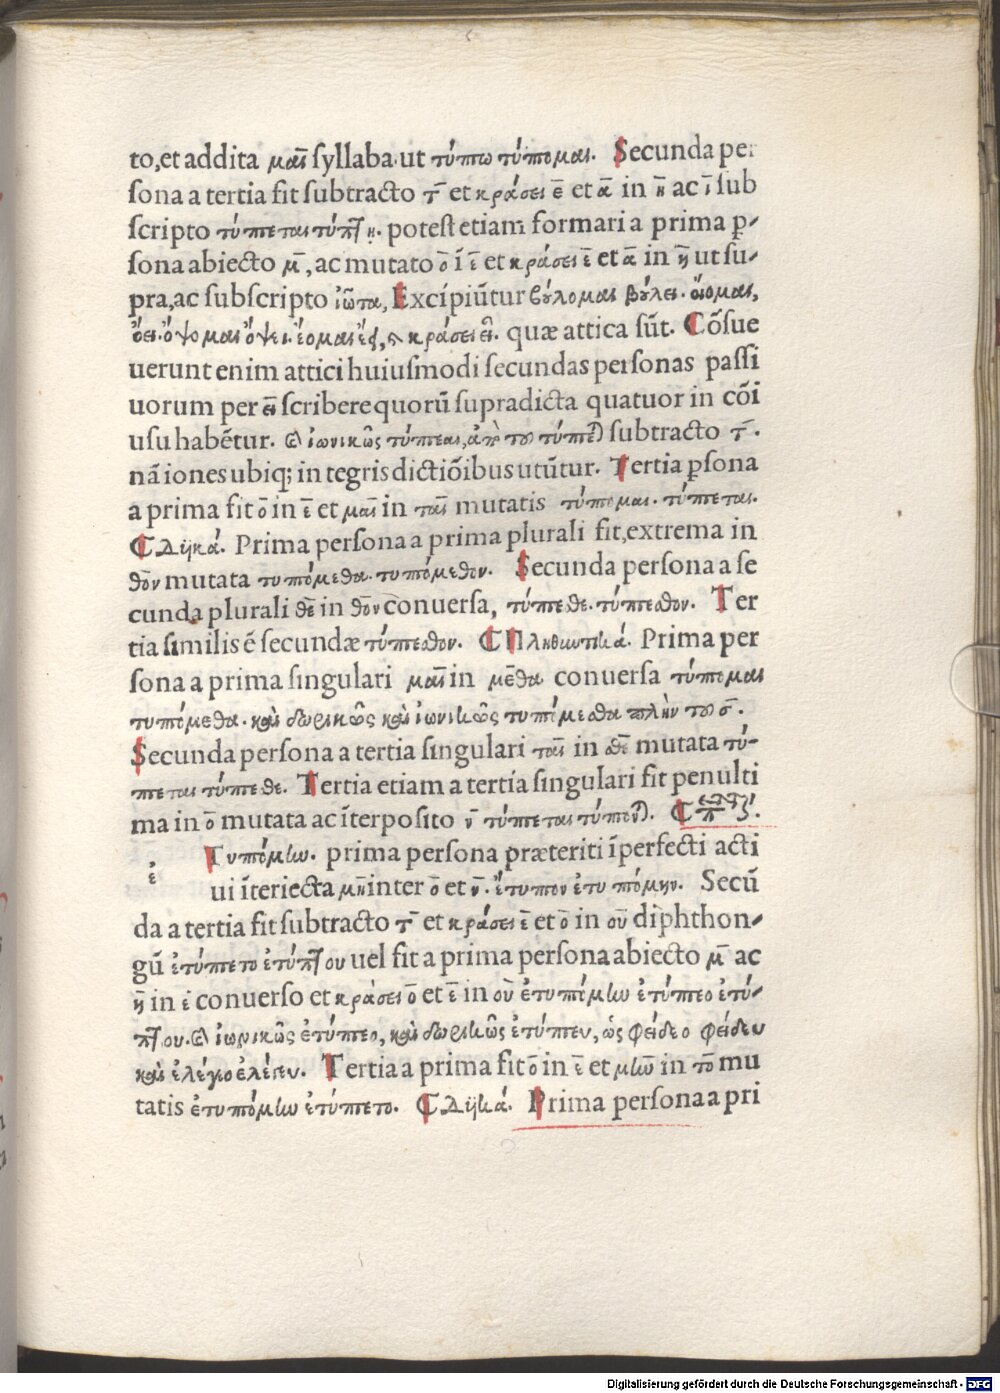 to, et addita μαῑ ſyllaba ut τύπτω τύπτομαι. Secunda per
ſona a tertia fit ſubtracto τ̄ et κράσει ε̄ et ᾱ in η̄ ac ῑ ſub
ſcripto τύπτεται τύπτῃ. poteſt etiam formari a prima p̱-
ſona abiecto μ̄, ac mutato ō ī ε̄ et κράσει ε̄ et ᾱ in ῃ̄ ut ſu-
pra, ac ſubſcripto ἰῶτα, Excipiūtur βούλομαι βούλει. οἴομαι,
οἴει. ὄψομαι ὄψει. quæ attica ſūt. Cōſue
uerunt enim attici huiuſmodi ſecundas perſonas paſſi
uorum per ει ſcribere quorū ſupradicta quatuor in cōi
uſu habētur. ἰωνικῶς τύπτεαι, ſubtracto τ̄.
nā iones ubiq; in tegris dictiōibus utūtur. Tertia p̱ſona
a prima fit ō in ε̄ et μαῑ in ταῑ mutatis τύπτομαι. τύπτεται.
¶ Δυϊκά. Prima perſona a prima plurali fit, extrema in
θον mutata τυπτόμεθα. τυπτόμεθον. Secunda perſona a ſe
cunda plurali σθε in σθον conuerſa, τύπτεσθε. τύπτεσθον. Ter
tia ſimilis ē ſecundæ τύπτεσθον. ¶ Πληθυντικά. Prima per
ſona a prima ſingulari μαῑ in μεθα conuerſa τύπτομαι
τυπτόμεθα. καὶ δωρικῶς καὶ ἰωνικῶς τυπτόμεσθα πλὴν τοῦ σ̄.
Secunda perſona a tertia ſingulari ταῑ in σθε mutata τύ-
πτεται τύπτεσθε. Tertia etiam a tertia ſingulari fit penulti
ma in ō mutata ac īterpoſito ν̄ τύπτεται τύπτονται. ¶
Τυπτόμην. prima perſona præteriti īperfecti acti
ε
ui īteriecta μη inter ō et ν̄. ἔτυπτον ἐτυπτόμην. Secū
da a tertia fit ſubtracto τ̄ et κράσει ε̄ et ō in οῡ diphthon-
gū ἐτύπτετο ἐτύπτου uel fit a prima perſona abiecto μ̄ ac
η̄ in ε̄ conuerſo et κράσει ō et ε̄ in οῡ ἐτυπτόμην ἐτύπτεο ἐτύ-
πτου. ἰωνικῶς ἐτύπτεο, καὶ δωρικῶς ἐτύπτευ, ὡς φείδεο φείδευ
καὶ ἐλέγεο ἐλέγευ. Tertia a prima fit ō in ε̄ et μην in το mu
tatis ἐτυπτόμην ἐτύπτετο. ¶ Δυϊκά. Prima perſona a pri
Digitalisierung gefördert durch die Deutsche Forschungsgemeinschaft - DFG